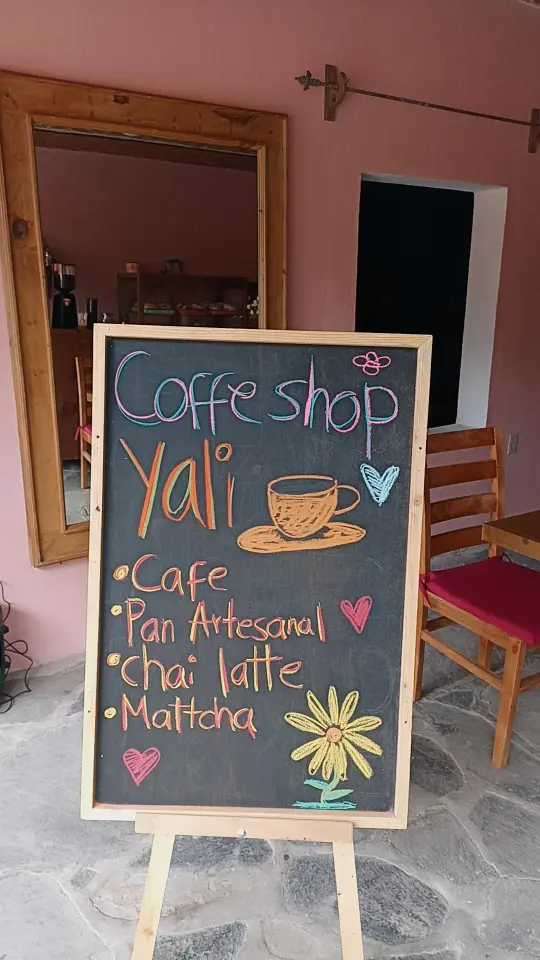 Coffe shop
Yali
Cafe
Pan Artesanal
chai latte
Mattcha